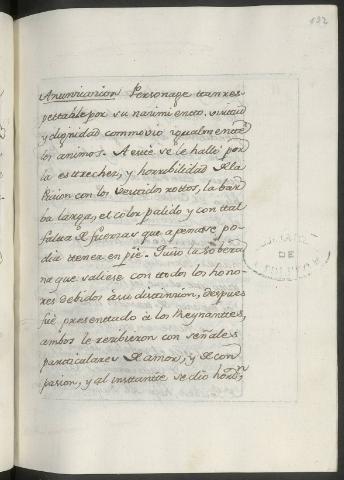 132
Anunciacion Personage tan res-
petable por su nacimiento virtud
y dignidad commovio igualmente
los animos. A este se le hallò por
la estrechez, y horribilidad de la
Pricion con los vestidos rottos, la bar-
ba larga, el color palido y con tal
falta de fuerzas que apenas se po-
dia tener en pie. Quiso la sobera-
na que saliese con todos los hono-
res debidos à su distincion, despues
fuè presentado à los Reynantes,
ambos le recibieron con señales
particulares de amor, y de com-
pasion, y al instante se dio horđn,
DE